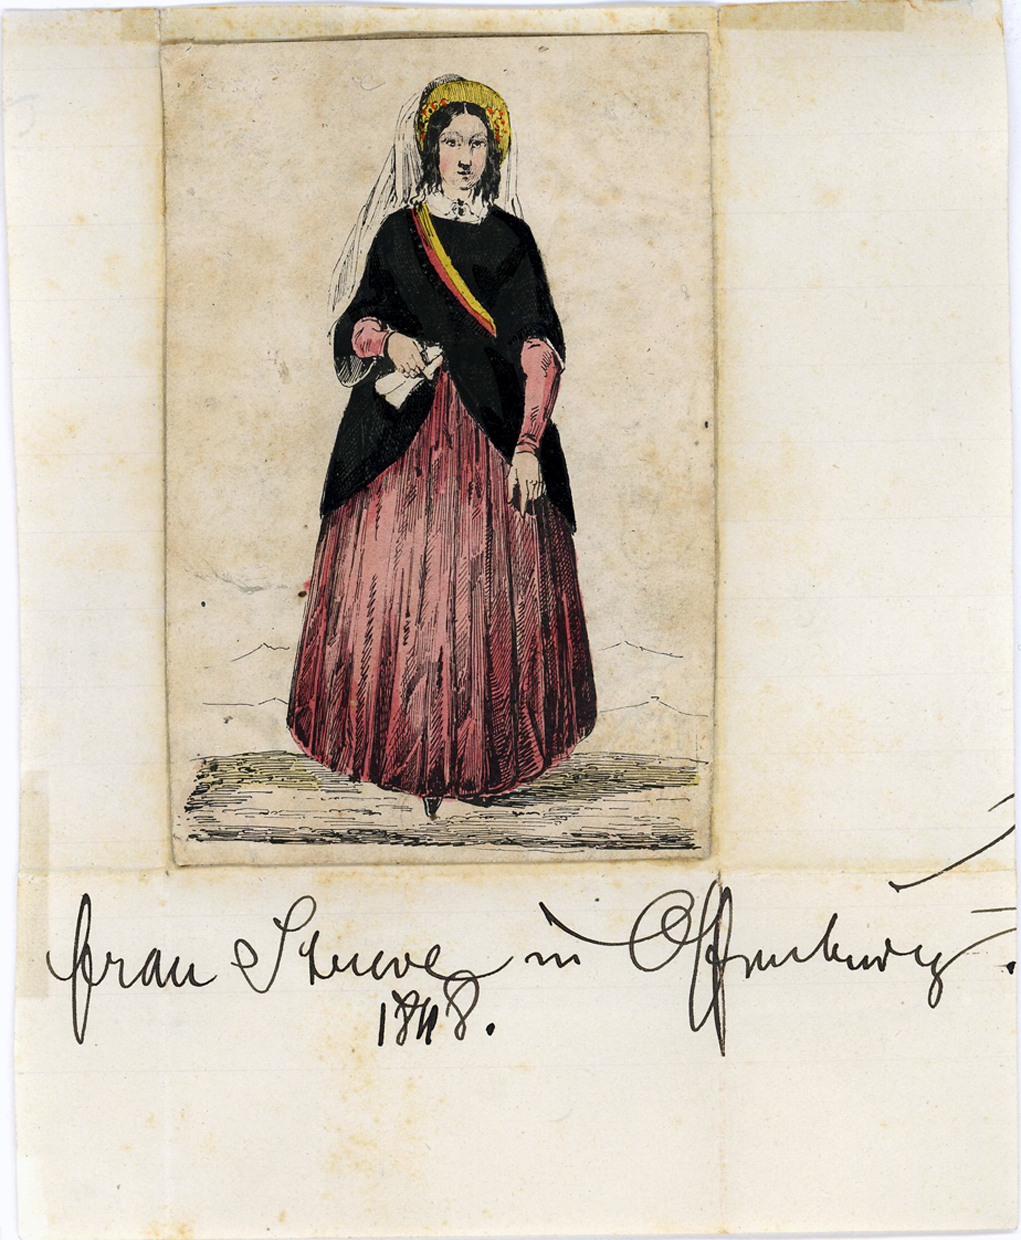 Frau Struve in Offenburg.
1848.